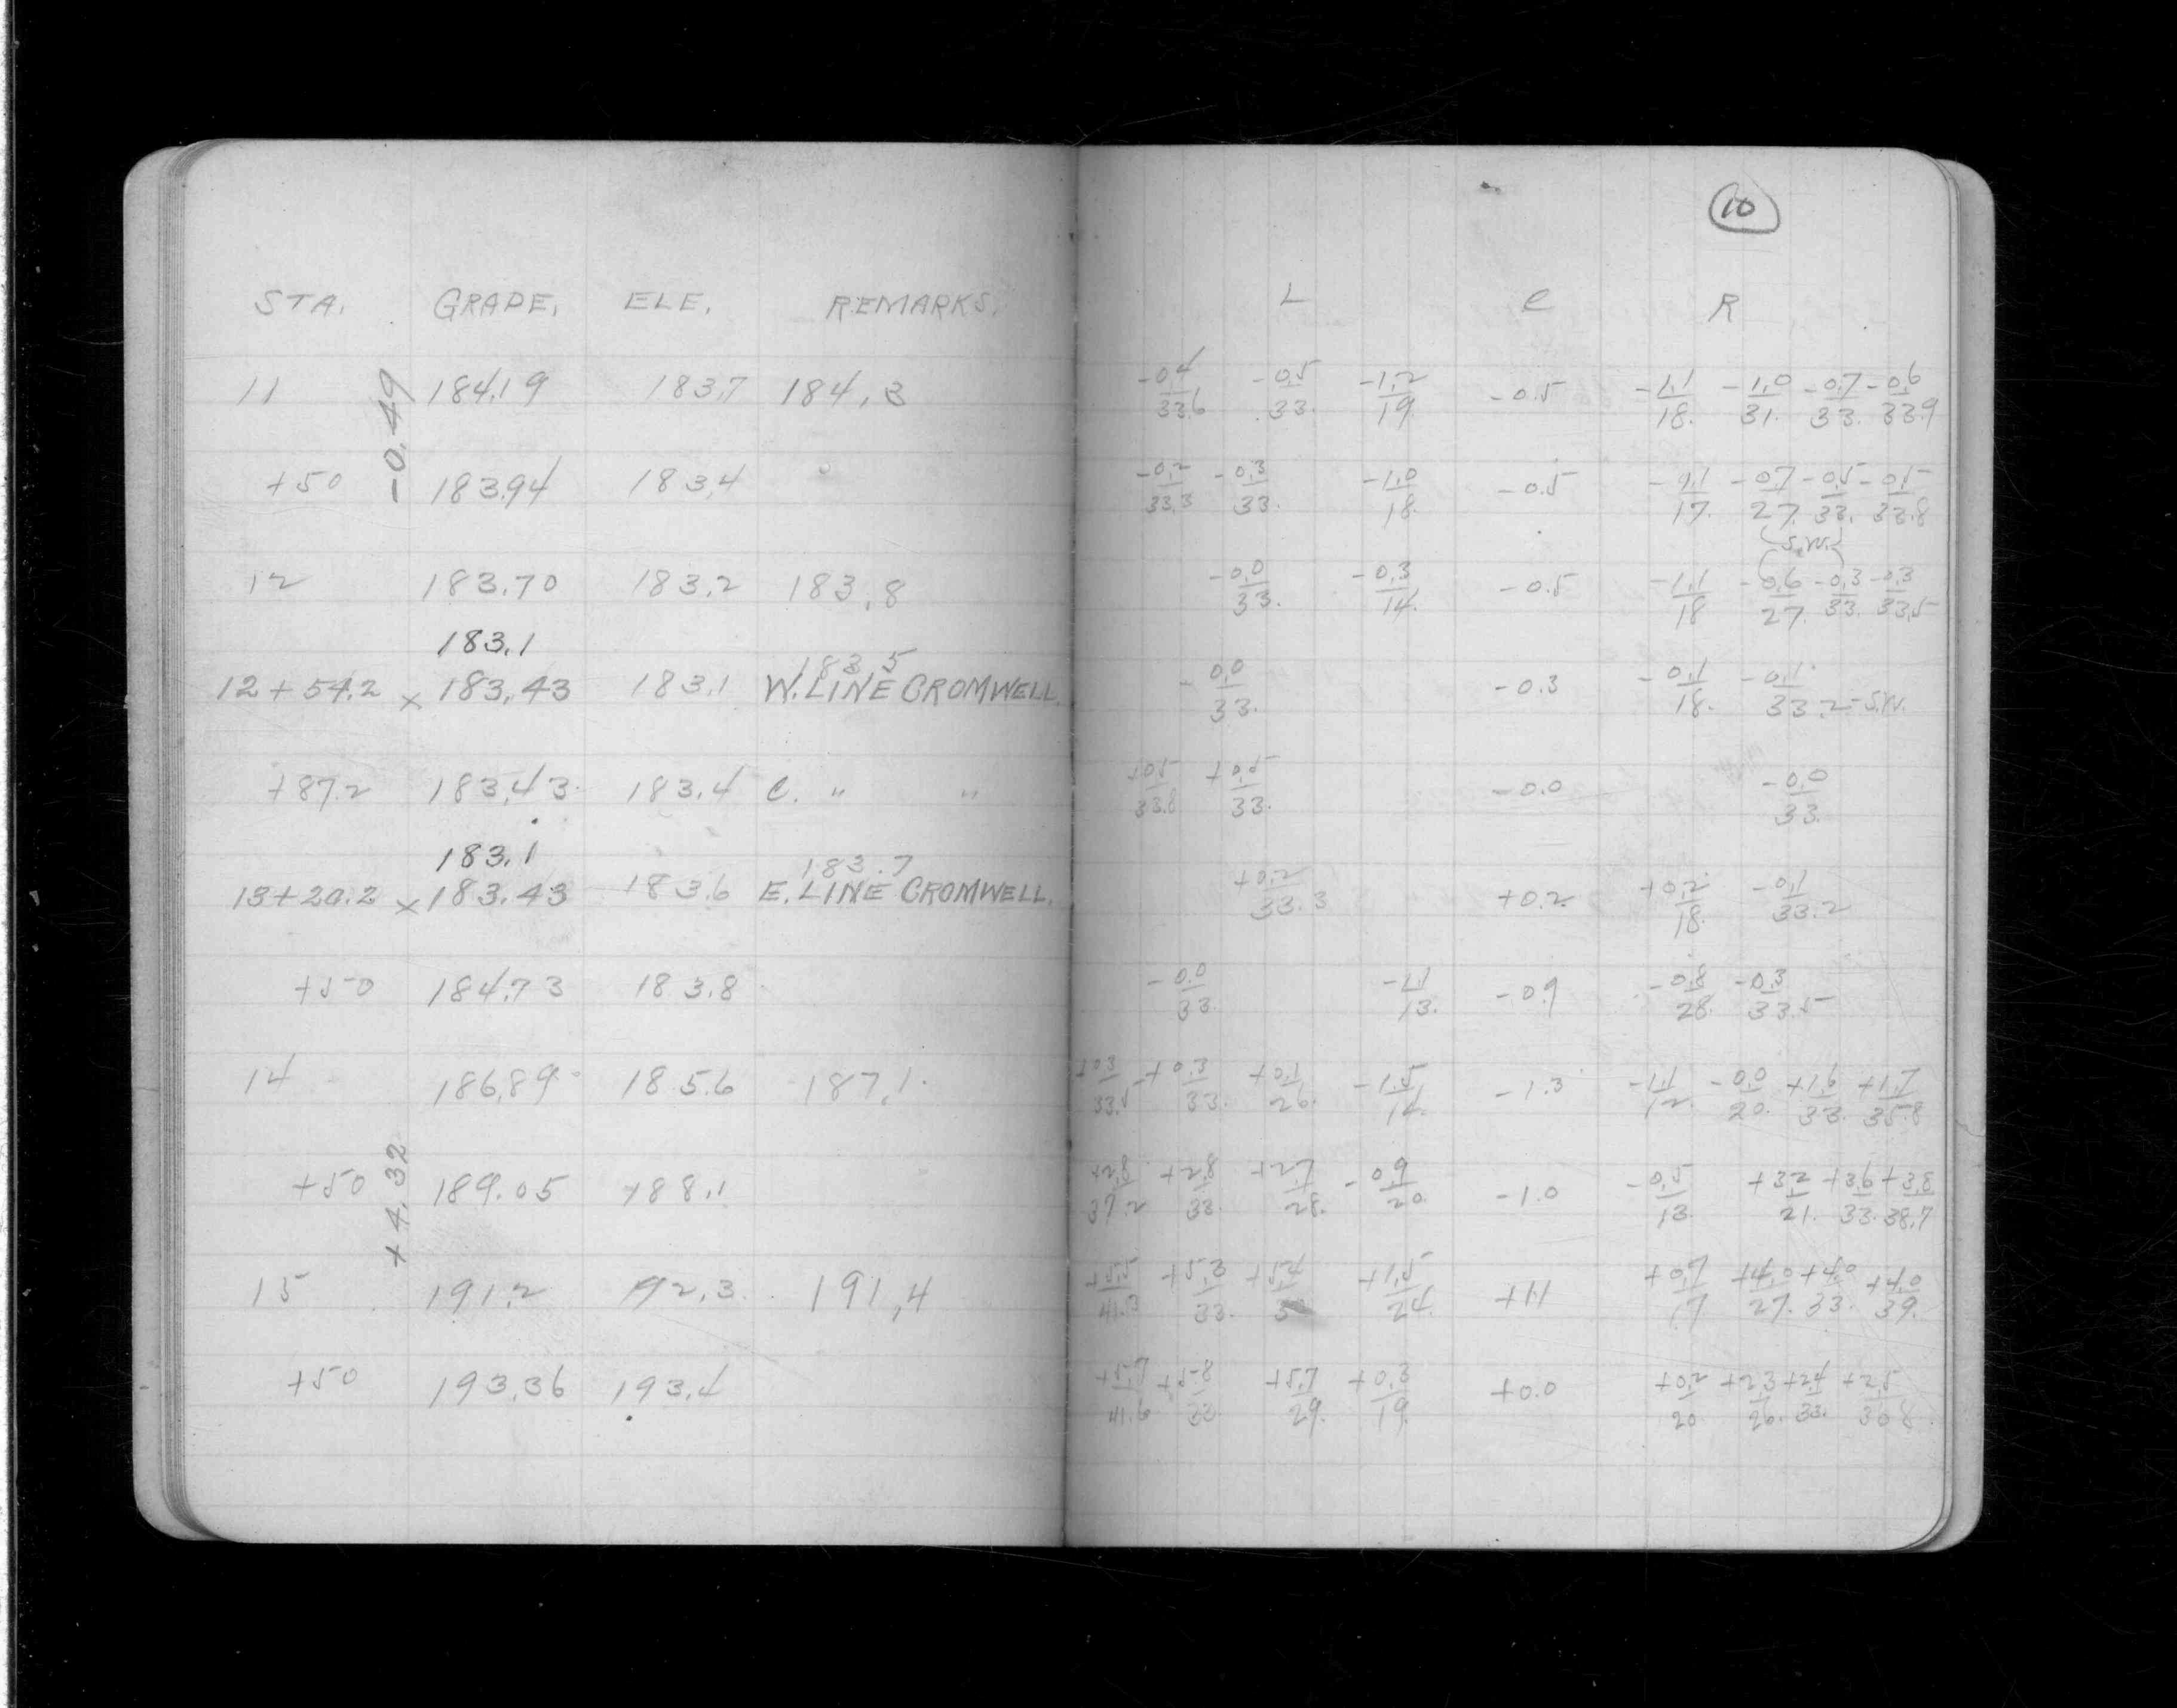 10
STA. GRADE. ELE. REMARKS. L C R
11 184.19 183.7 184.3 -0.4/33.6 -0.5/33. -1.2/19. -0.5 -1.1/18. -1.0/31. -0.7/33. -0.6/33.9
-0.49
+50 183.94 183.4 -0.2/33.3 -0.3/33. -1.0/18. -0.5 /17. -0.7/27. -0.5/33. -0.5/33.8
S.W.
12 183.70 183.2 183.8 -0.0/33. -0.3/14. -0.5 -1.1/18 -0.6/27. -0.3/33. -0.3/33.5
183.1 183.5
12+54.2 x 183.43 183.1 W. LINE CROMWELL. -0.0/33. -0.3 -0.1/18. -0.1/33.2 -S.W.
+87.2 183.43 183.4 C. " " +0.5/33.8 +0.5/33. -0.0 -0.0/33.
183.1 183.7
13+20.2 x 183.43 183.6 E. LINE CROMWELL. +0.2/33.3 +0.2 +0.2/18. -0.1/33.2
+50 184.73 183.8 -0.0/33. -1.1/13. -0.9 -0.8/28. -0.3/33.5
14 186.89 185.6 187.1 +0.3/33.5 +0.3/33. +0.1/26. -1.5/14. -1.3 -1.1/12. -0.0/20. +1.6/33. +1.7/35.8
+4.32
+50 189.05 188.1 +2.8/37.2 +2.8/33. +2.7/28. -0.9/20. -1.0 -0.5/13. +3.2/21. +3.6/33. +3.8/38.7
15 191.2 192.3 191.4 +5.5/41.3 +5.3/33. +5.4/ +1.5/24. +1.1 +0.7/17 +4.0/27. +4.0/33. +4.0/39.
+50 193.36 193.4 +5.7/41.6 +5.8/33. +5.7/29. +0.3/19. +0.0 +0.2/20 +2.3/26. +2.4/33. +2.5/